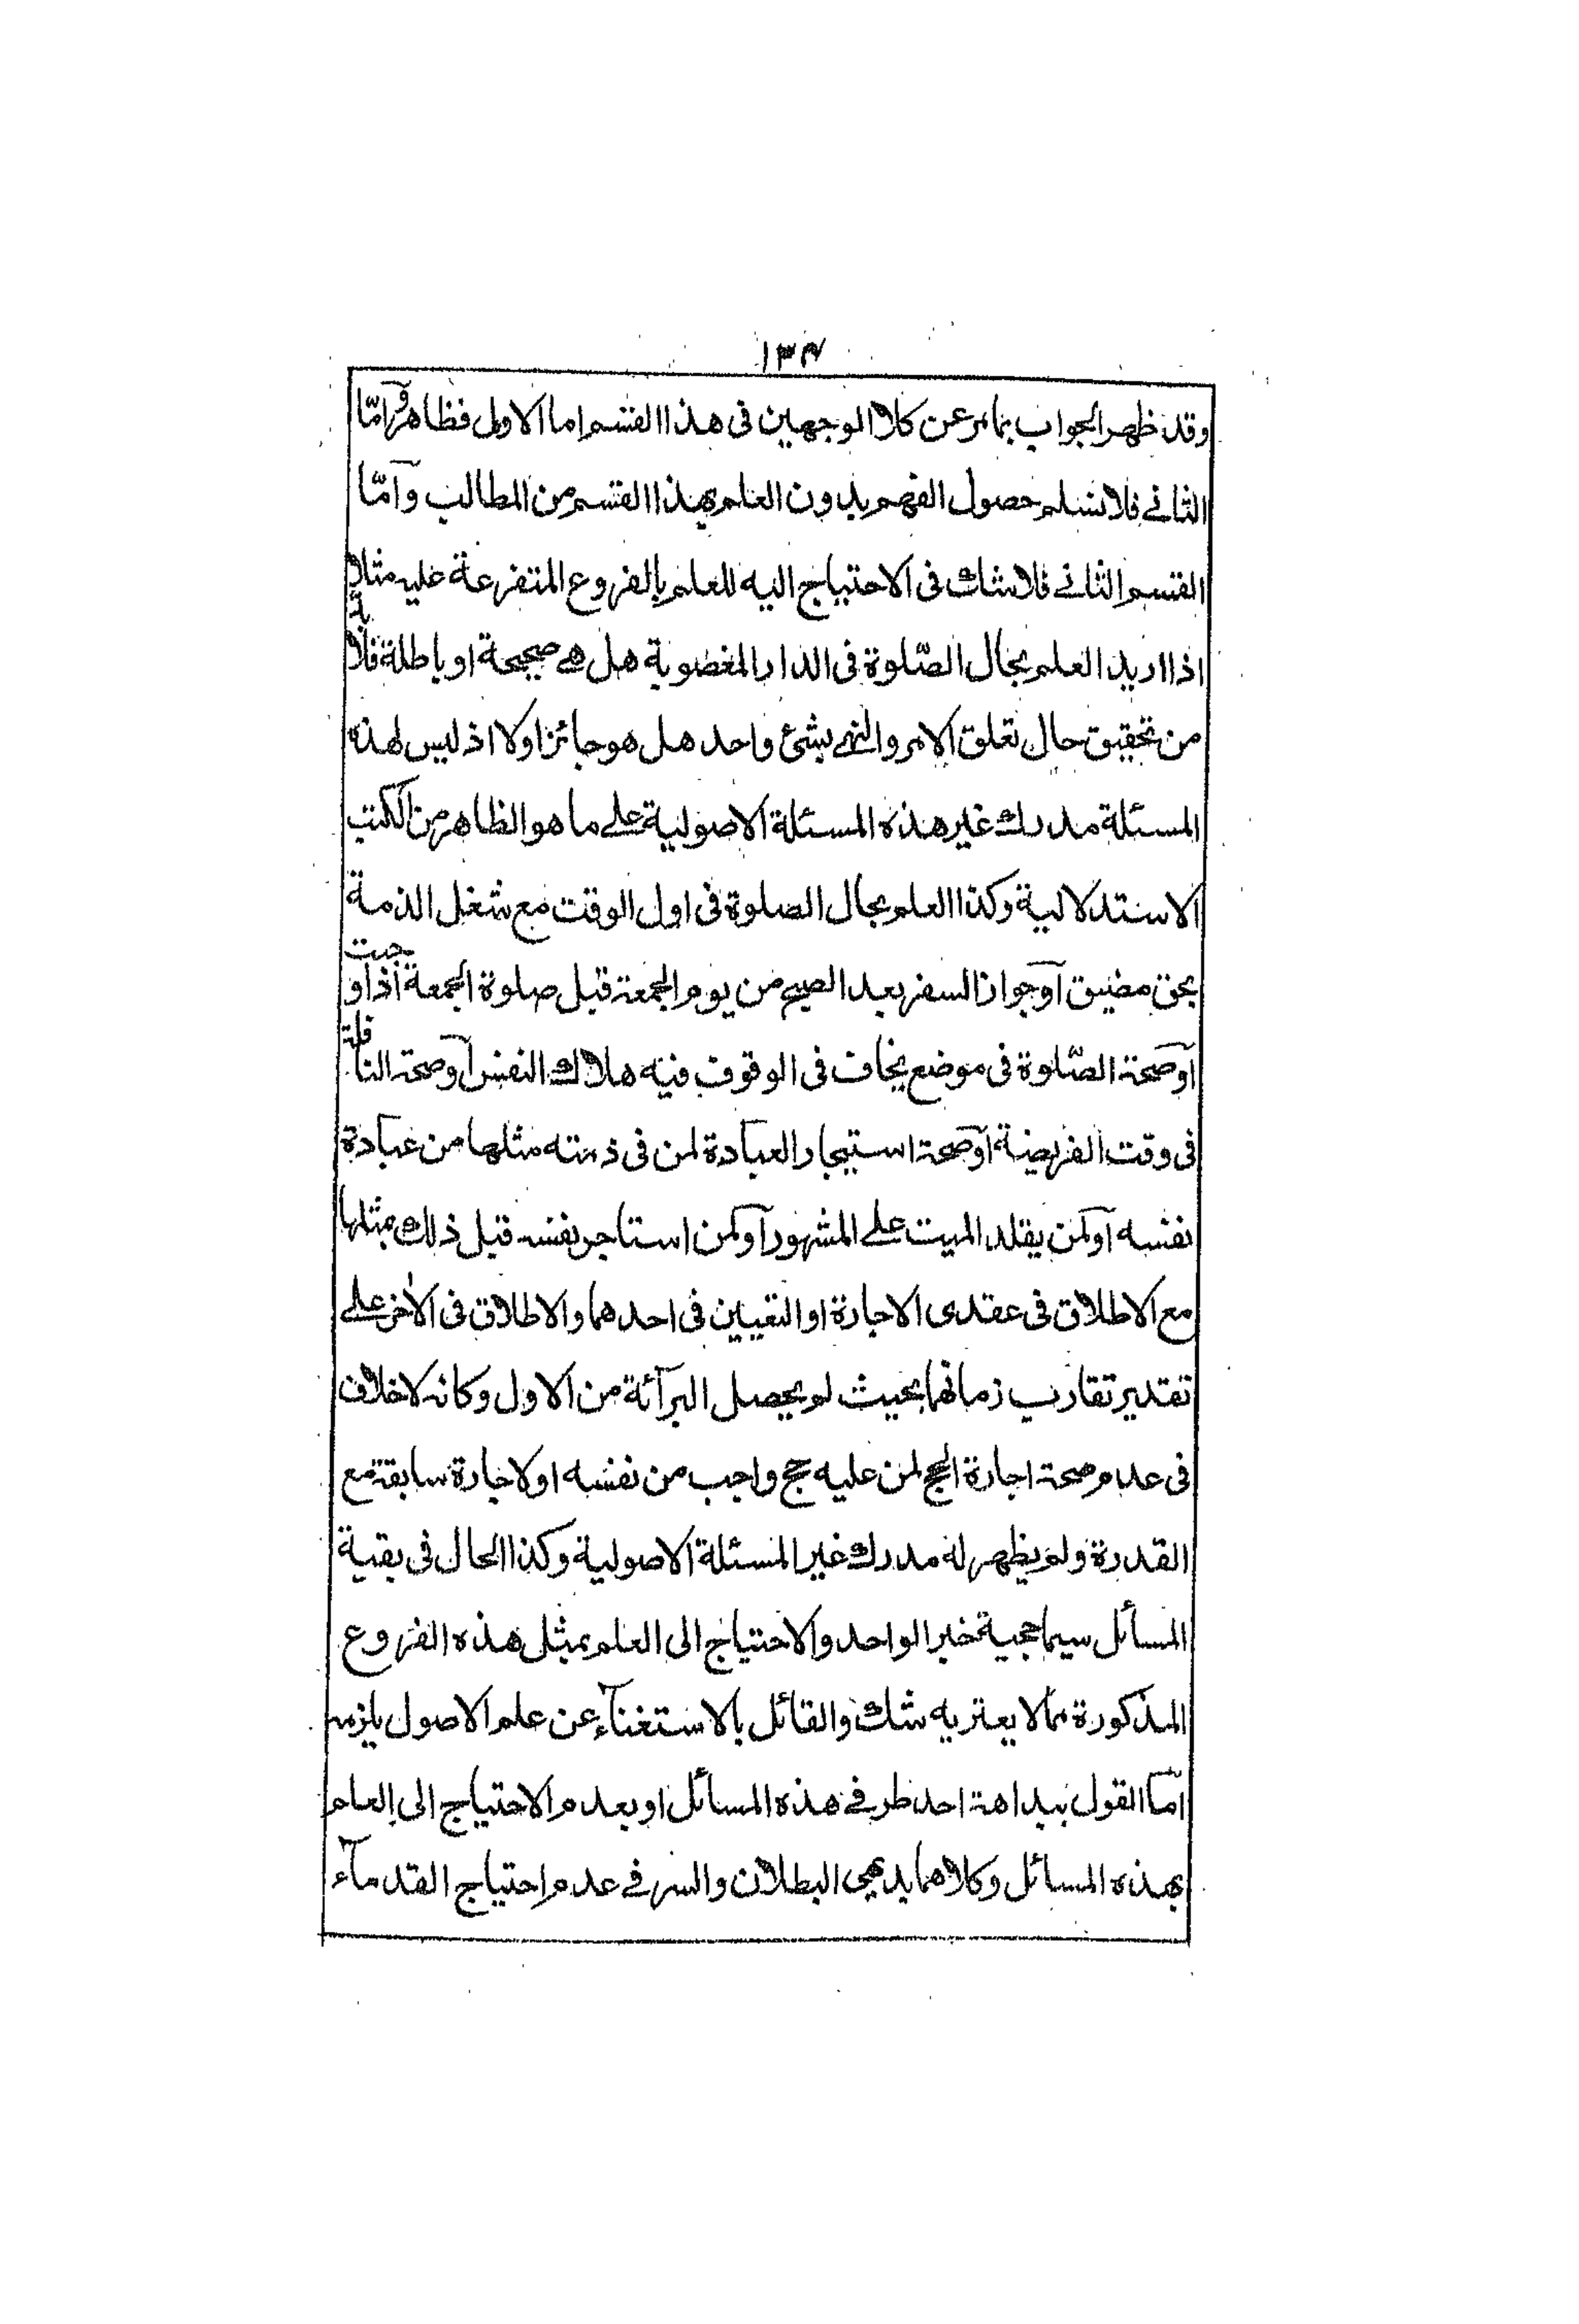 ١٣٤
وقد ظهر الجواب بما مر عن كلا الوجهين فى هذا القسم اما الاول فظاهر وامّا
الثانى فلا نسلم حصول الفهم بدون العلم بهذا القسم من المطالب وآمّا
القسم الثانى فلا شك فى الاحتياج اليه للعلم بالفروع المتفرعة عليه مثلا
اذا اريد العلم بحال الصّلوة فى الدار المغصوبة هل هى صحيحة او باطلة فلا بد
من تحقيق حال تعلق الامر والنهى بشئ واحد هل هو جائز اولا اذ ليس لهذه
المسئلة مدرك غير هذه المسئلة الاصولية على ما هو الظاهر من الكتب
الاستدلالية وكذا العلم بحال الصلوة فى اول الوقت مع شغل الذمة
بحق مضيق آوجواز السفر بعد الصبح من يوم الجمعة قبل صلوة الجمعة اذا وجبت
آوصحة الصّلوة فى موضع يخاف فى الوقوف فيه هلاك النفس آوصحة النافلة
فى وقت الفريضة آوصحة استيجار العبادة لمن فى ذمته مثلها من عبادة
نفسه آولمن يقلد الميت على المشهور آولمن استاجر نفسه قبل ذلك بمثلها
مع الاطلاق فى عقدى الاجارة او التعيين فى احدهما والاطلاق فى الاخر على
تقدير تقارب زمانهما بحيث لم يحصل البرآئة من الاول وكانه لا خلاف
فى عدم صحة اجارة الحج لمن عليه حج واجب من نفسه او لاجارة سابقة مع
القدرة ولم يظهر له مدرك غير المسئلة الاصولية وكذا الحال فى بقية
المسائل سيما حجية خبر الواحد والاحتياج الى العلم بمثل هذه الفروع
المذكورة مما لا يعتريه شك والقائل بالاستغنآء عن علم الاصول يلزمه
امّا القول ببداهة احد طرفى هذه المسائل او بعدم الاحتياج الى العلم
بهذه المسائل وكلاهما بديهى البطلان والسر فى عدم احتياج القدمآء